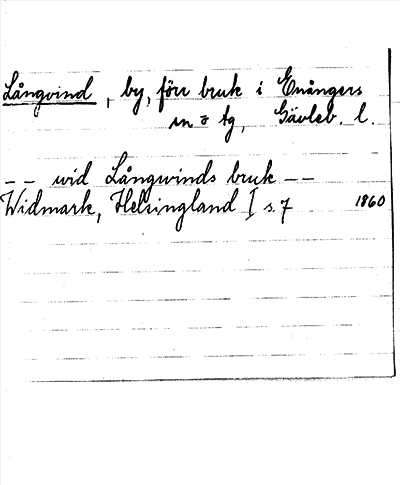 Långvind, by, förr bruk i Enångers
sn o tg, Gävleb. l.
-- wid Långwinds bruk --
Widmark, Helsingland I s. 7 1860